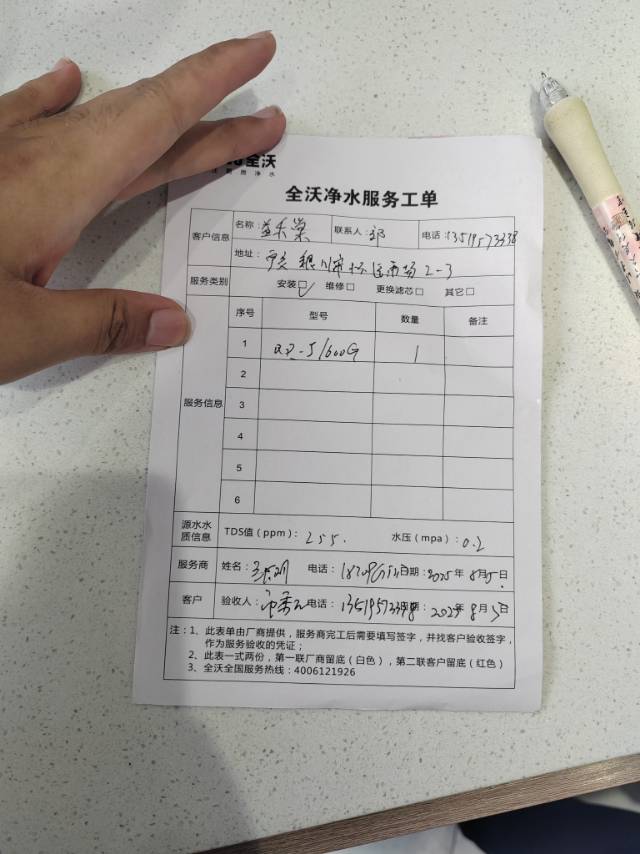 全沃
全沃净水服务工单
客户信息 名称: 益禾 联系人: 邹 电话: 13519573398
地址: 银川市 市场 2-3
服务类别 安装☑ 维修□ 更换滤芯□ 其它□
服务信息 序号 型号 数量 备注
1 /600G 1
2
3
4
5
6
源水水质信息 TDS值(ppm): 255. 水压(mpa): 0.2
服务商 姓名: 电话: 日期: 2025年8月5日
客户 验收人: 电话: 13519573398 日期: 2025年8月5日
注:1、此表单由厂商提供,服务商完工后需要填写签字,并找客户验收签字,
作为服务验收的凭证;
2、此表一式两份,第一联厂商留底(白色),第二联客户留底(红色)
3、全沃全国服务热线:4006121926